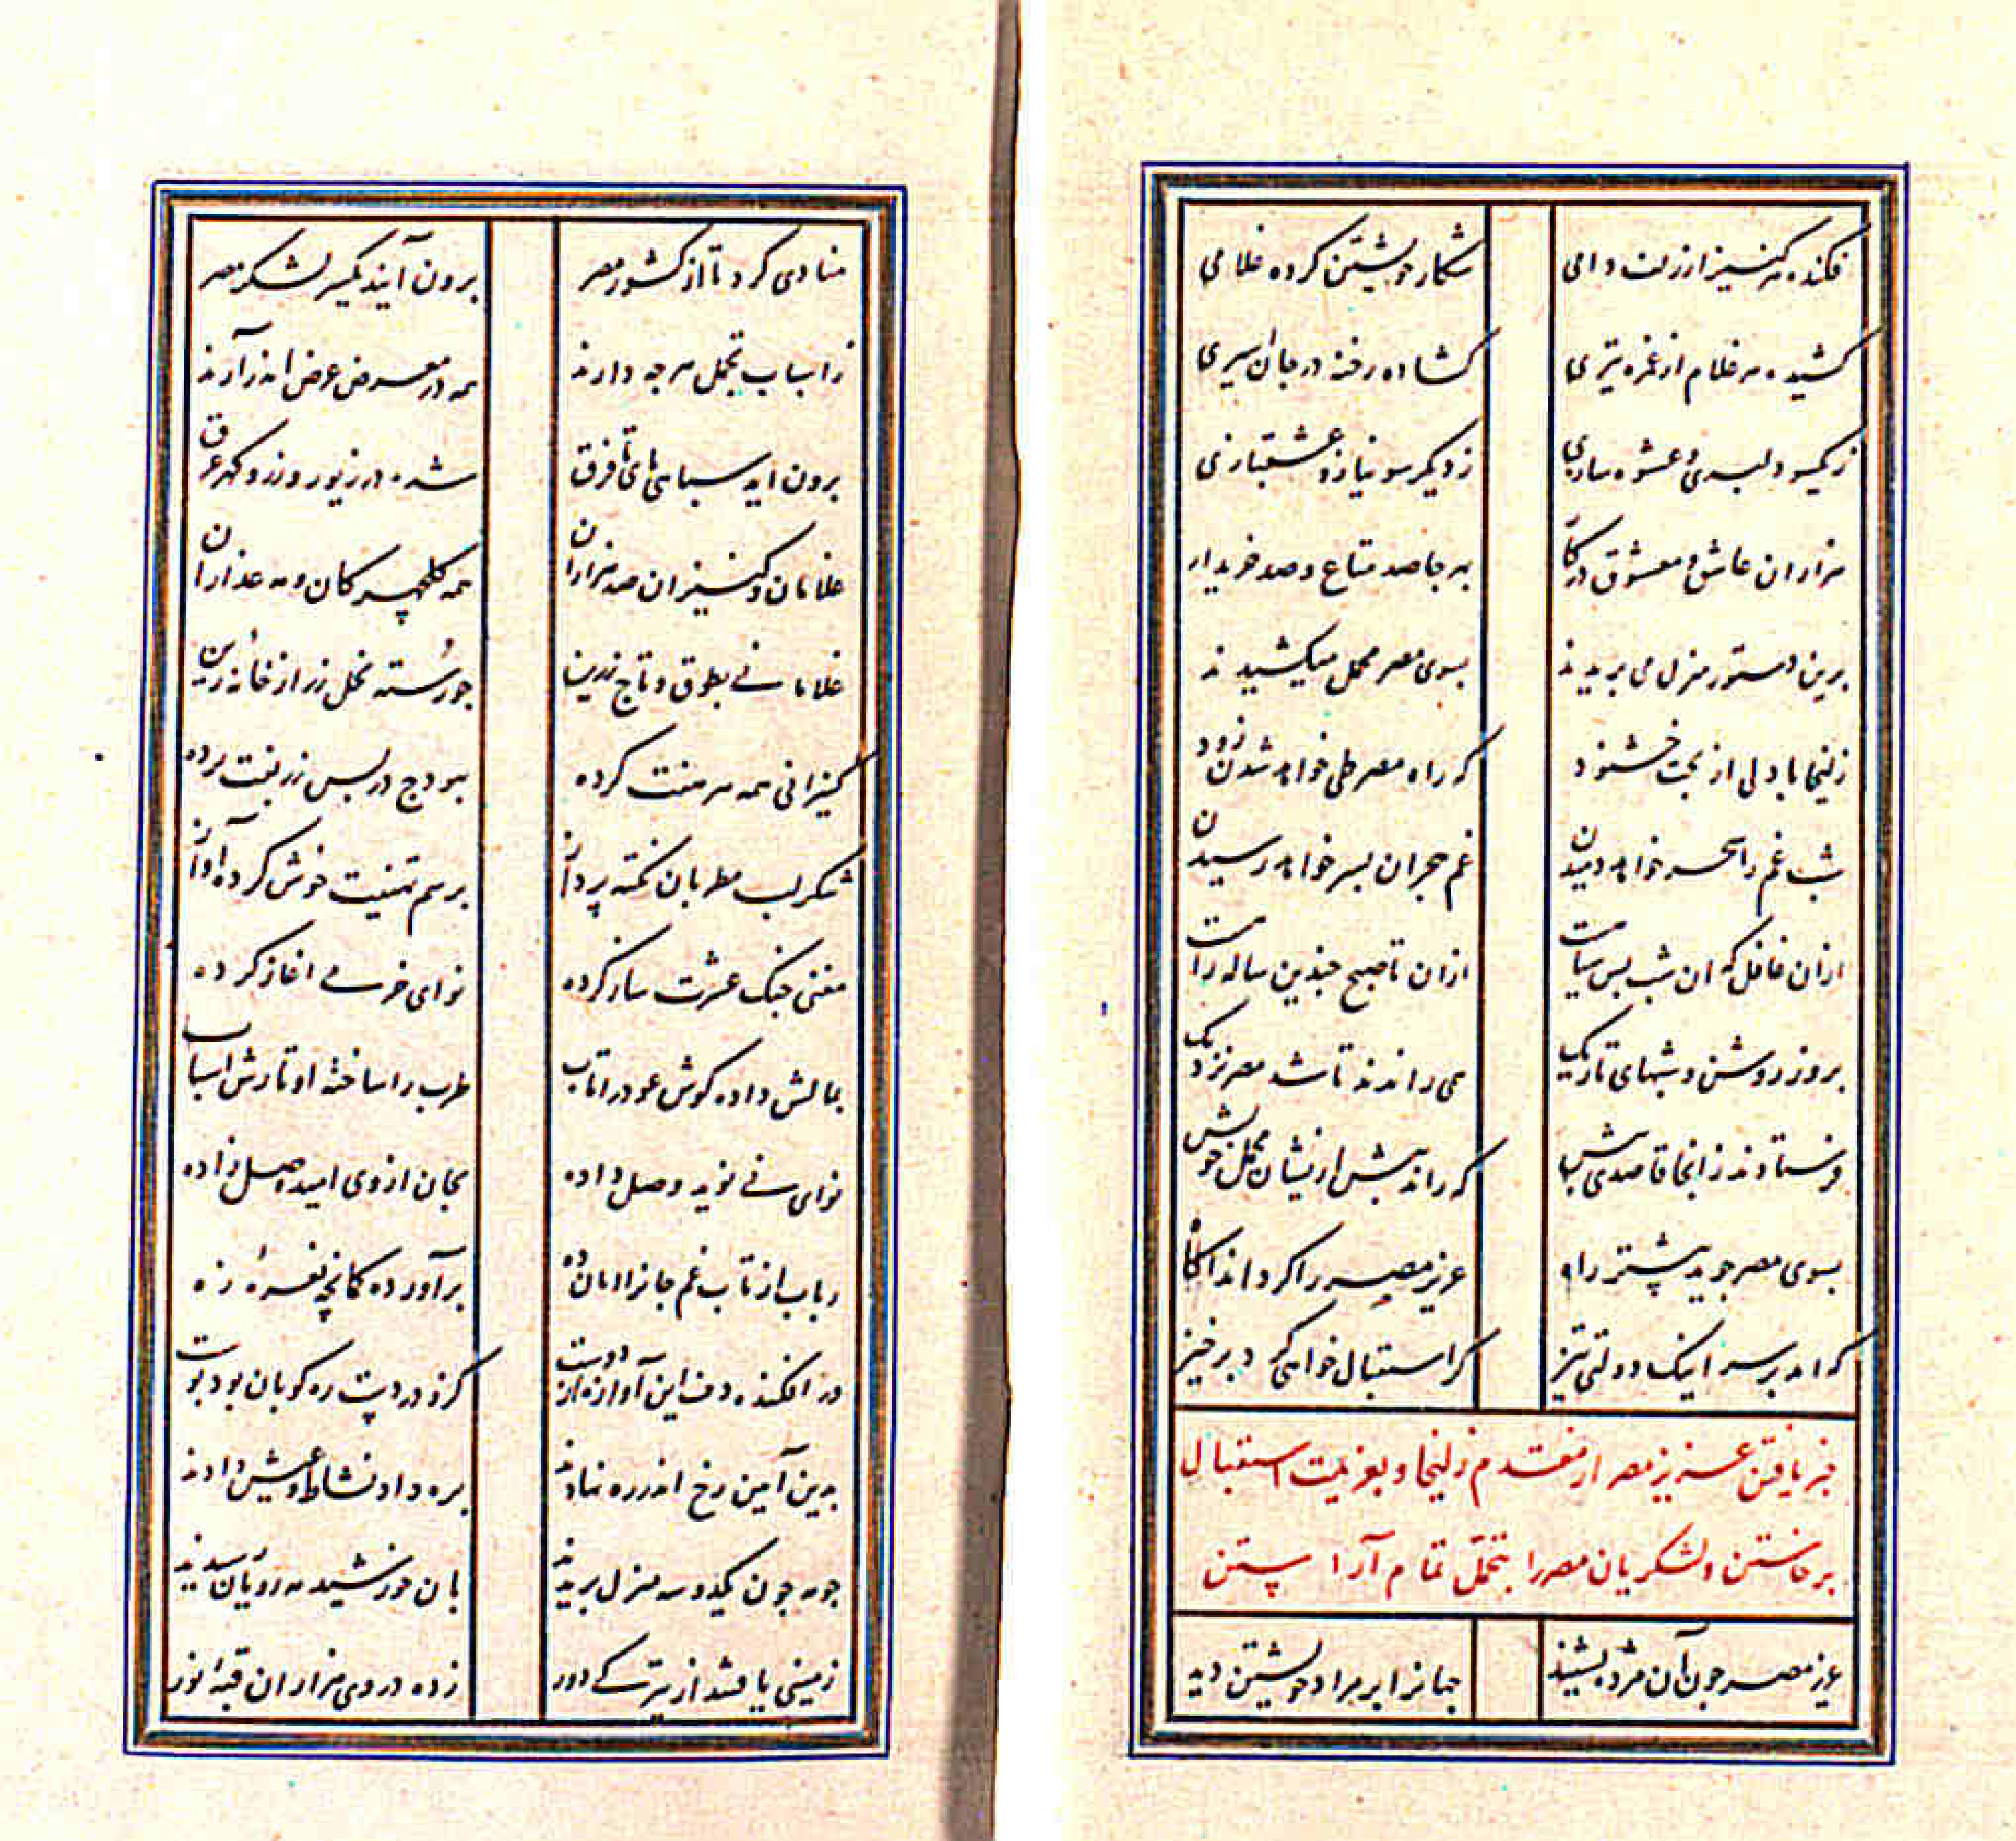 فکنده هر کنیز از زلف دامی شکار خویشتن کرده غلامی
کشیده هر غلام از غمزه تیری کشاده رخنه در جان اسیری
ز یکسو دلبری و عشوه سازی ز دیکر سو نیاز و عشقبازی
هزاران عاشق و معشوق در کار بهر جا صد متاع و صد خریدار
برین دستور منزل می بریدند بسوی مصر محمل میکشیدند
زلیخا با دلی از بخت خشنود که راه مصر طی خواهد شدن زود
شب غم را سحر خواهد دمیدن غم هجران بسر خواهد رسیدن
ازان غافل که ان شب بس سیاست ازان تا صبح چندین ساله راهست
بروز روشن و شبهای تاریک همی راندند تا شد مصر نزدیک
فرستادند زانجا قاصدی پیش که راند پیش ازیشان محمل خویش
بسوی مصر جوید پیشتر راه عزیز مصر را کرداند اکاه
که امد بر سر اینک دولتی تیز کر استقبال خواهی کرد برخیز
خبر یافتن عزیز مصر از مقدم زلیخا و بعزیمت استقبال
برخاستن و لشکریان مصر را بتجمّل تمام آراستن
عزیز مصر چون آن مژده بشنید جهانرا بر مراد خویشتن دید
منادی کرد تا از کشور مصر برون آیند یکسر لشکر مصر
ز اسباب تجمل هرچه دارند همه در معرض عرض اندر آرند
برون امد سپاهی پای تا فرق شده در زیور و زر و کهر غرق
غلامان و کنیزان صد هزاران همه کلچهرکان و مه عذاران
غلامانی بطوق و تاج زرین چو رُسته نخل زر از خانهٔ زین
کنیزانی همه هر هفت کرده بهودج در پس زربفت پرده
شکرلب مطربان نکته پرداز برسم تهنیت خوش کرده آواز
مغنی چنک عشرت ساز کرده نوای خرمی اغاز کرده
بمالش داده کوش عود را تاب طرب را ساخته اوتارش اسباب
نوای نی نوید وصل داده بجان از وی امید وصل زاده
رباب از تاب غم جانرا امان ده برآورده کمانچه نعرهٔ زه
در افکنده دف این آوازه از دوست کزو در دست ره کوبان بود پوست
بدین آیین رخ اندر ره نهادند بره داد نشاط و عیش دادند
چو مه چون یکدو سه منزل بریدند بان خورشید مه رویان رسیدند
زمینی یافتند از تیرکی دور زده در وی هزاران قبهٔ نور